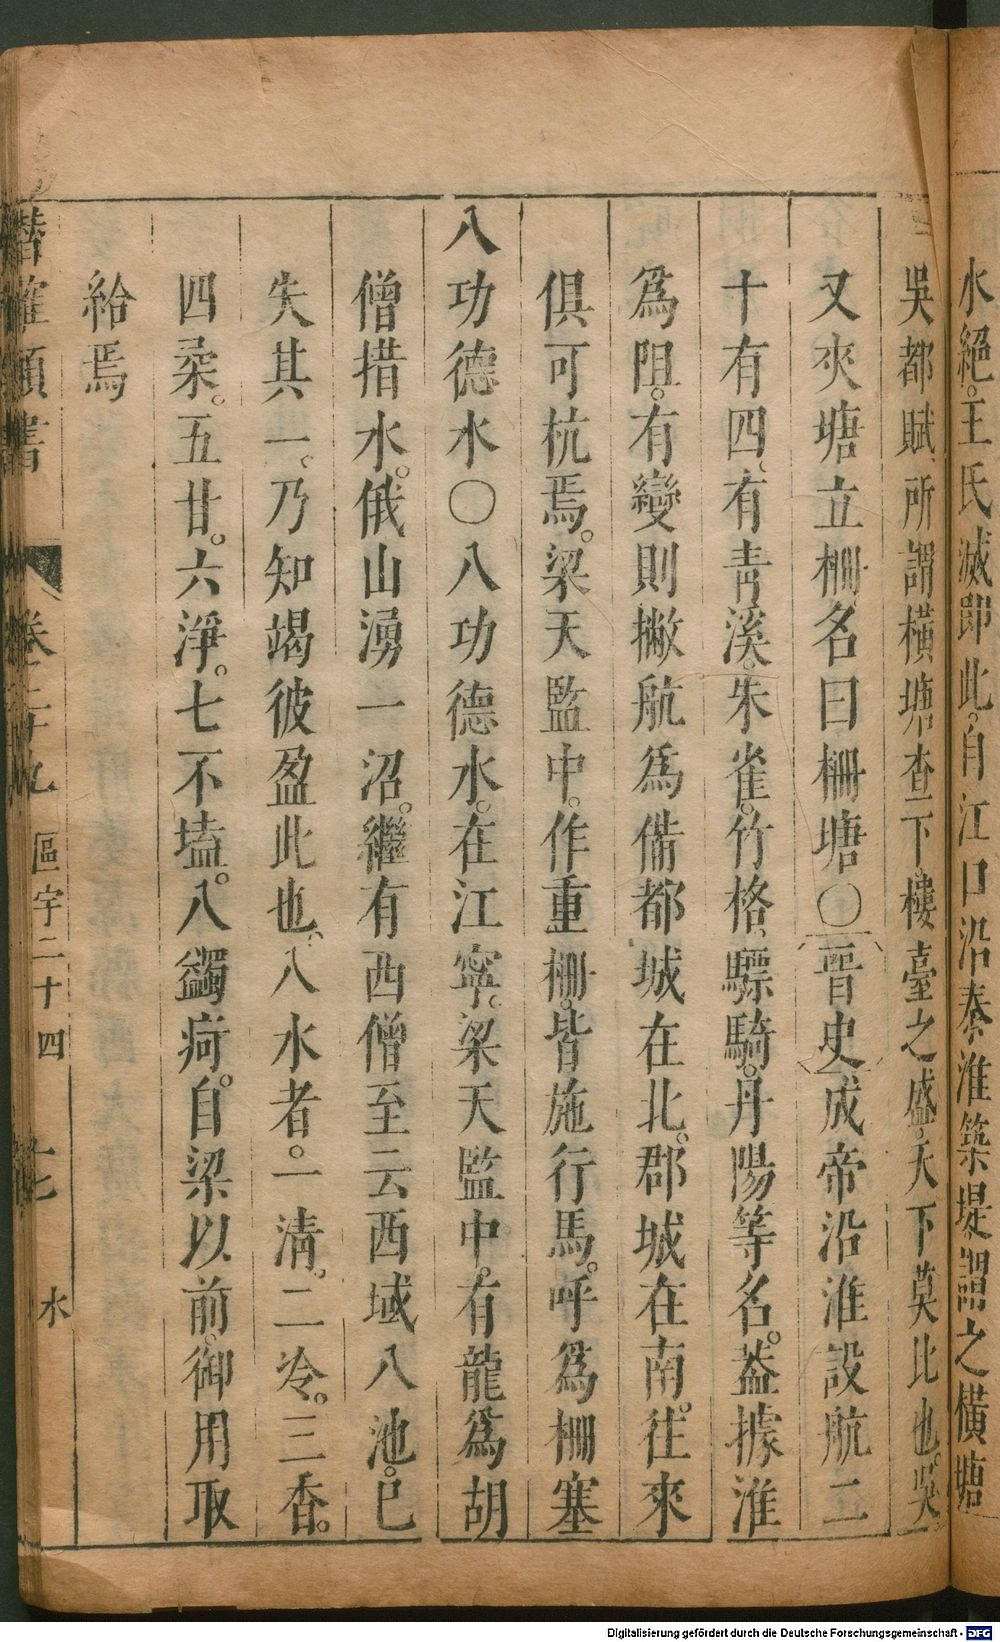 水絕。王氏滅即此。自江口沿秦淮築堤謂之橫塘
吳都賦所謂橫塘查下。樓臺之盛。天下莫比也。吳
又夾塘立柵名曰柵塘〇晉史成帝沿淮設航二
十有四、有青溪。朱雀。竹格、驃騎。丹陽等名。蓋據淮
為阻。有變則撇航為備都城在北。郡城在南。往來
俱可杭焉。梁天監中。作重柵。皆施行馬。呼為柵塞
八功德水〇八功德水。在江寧。梁天監中。有龍為胡
僧措水。俄山湧一沼。繼有西僧至云西域八池。已
失其一。乃知竭彼盈此也。八水者。一清。二冷。三香。
四柔。五甘。六淨。七不𡏖。八蠲痾。自梁以前。御用取
給焉
潛確類書 卷二十九 區宇二十四 七 水
Digitalisierung gefördert durch die Deutsche Forschungsgemeinschaft - DFG